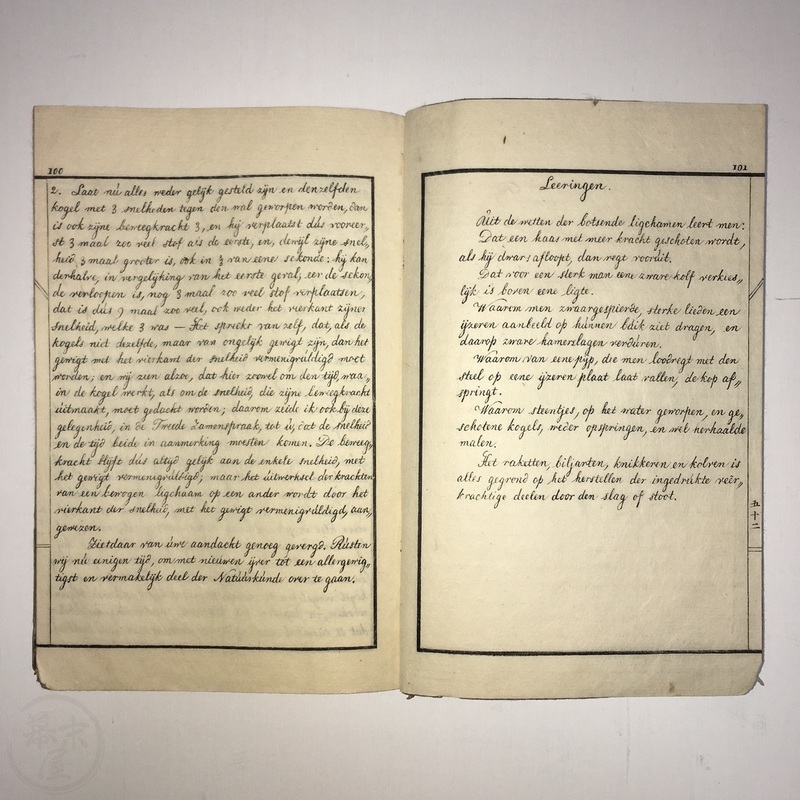 100
2. Laat nú alles weder gelijk gesteld zijn en denzelfden
kogel met 3 snelheden tegen den wal geworpen worden, dan
is ook zijne beweegkracht 3, en hij verplaatst dús vooreer„
st 3 maal zoo veel stof als de eerste, en, dewijl zijne snel„
heid 3 maal grooter is, ook in ⅓ van eene sekonde: hij kan
derhalve, in vergelijking van het eerste geval, eer de sekon„
de verloopen is, nog 3 maal zoo veel stof verplaatsen,
dat is dús 9 maal zoo veel, ook weder het vierkant zijner
snelheid, welke 3 was — Het spreekt van zelf, dat, als de
kogels niet dezelfde, maar van ongelijk gewigt zijn, dan het
gewigt met het vierkant der snelheid vermenigvúldigd moet
worden; en wij zien alzoo, dat hier zoowel om den tijd, waa„
in de kogel werkt, als om de snelheid, die zijne beweegkracht
úitmaakt, moet gedacht worden; daarom zeide ik ook bij deze
gelegenheid, in de Tweede Zamenspraak, tot ú, dat de snelheid
en de tijd beide in aanmerking moesten komen. De beweeg„
kracht blijft dús altijd gelijk aan de enkele snelheid, met
het gewigt vermenigvúldigd; maar het úitwerksel der krachten
van een bewogen ligchaam op een ander wordt door het
vierkant der snelheid, met het gewigt vermenigvúldigd, aan„
gewezen.
Zietdaar van úwe aandacht genoeg gevergd. Rústen
wij nú eenigen tijd, om met nieuwen ijver tot een allergewig„
tigst en vermakelijk deel der Natúúrkúnde over te gaan.
101
Leeringen.
Úit de wetten der botsende ligchamen leert men:
Dat een haas met meer kracht geschoten wordt,
als hij dwars afloopt, dan regt voorúit.
Dat voor een sterk man eene zware kolf verkies„
lijk is boven eene ligte.
Waarom men zwaargespierde, sterke lieden een
ijzeren aanbeeld op húnnen búik ziet dragen, en
daarop zware hamerslagen verdúren.
Waarom van eene pijp, die men loodregt met den
steel op eene ijzeren plaat laat vallen, de kop af„
springt.
Waarom steentjes, op het water geworpen, en ge„
schotene kogels, weder opspringen, en wel herhaalde
malen.
Het raketten, biljarten, knikkeren en kolven is
alles gegrond op het herstellen der ingedrúkte veêr„
krachtige deelen door den slag of stoot.
五十二